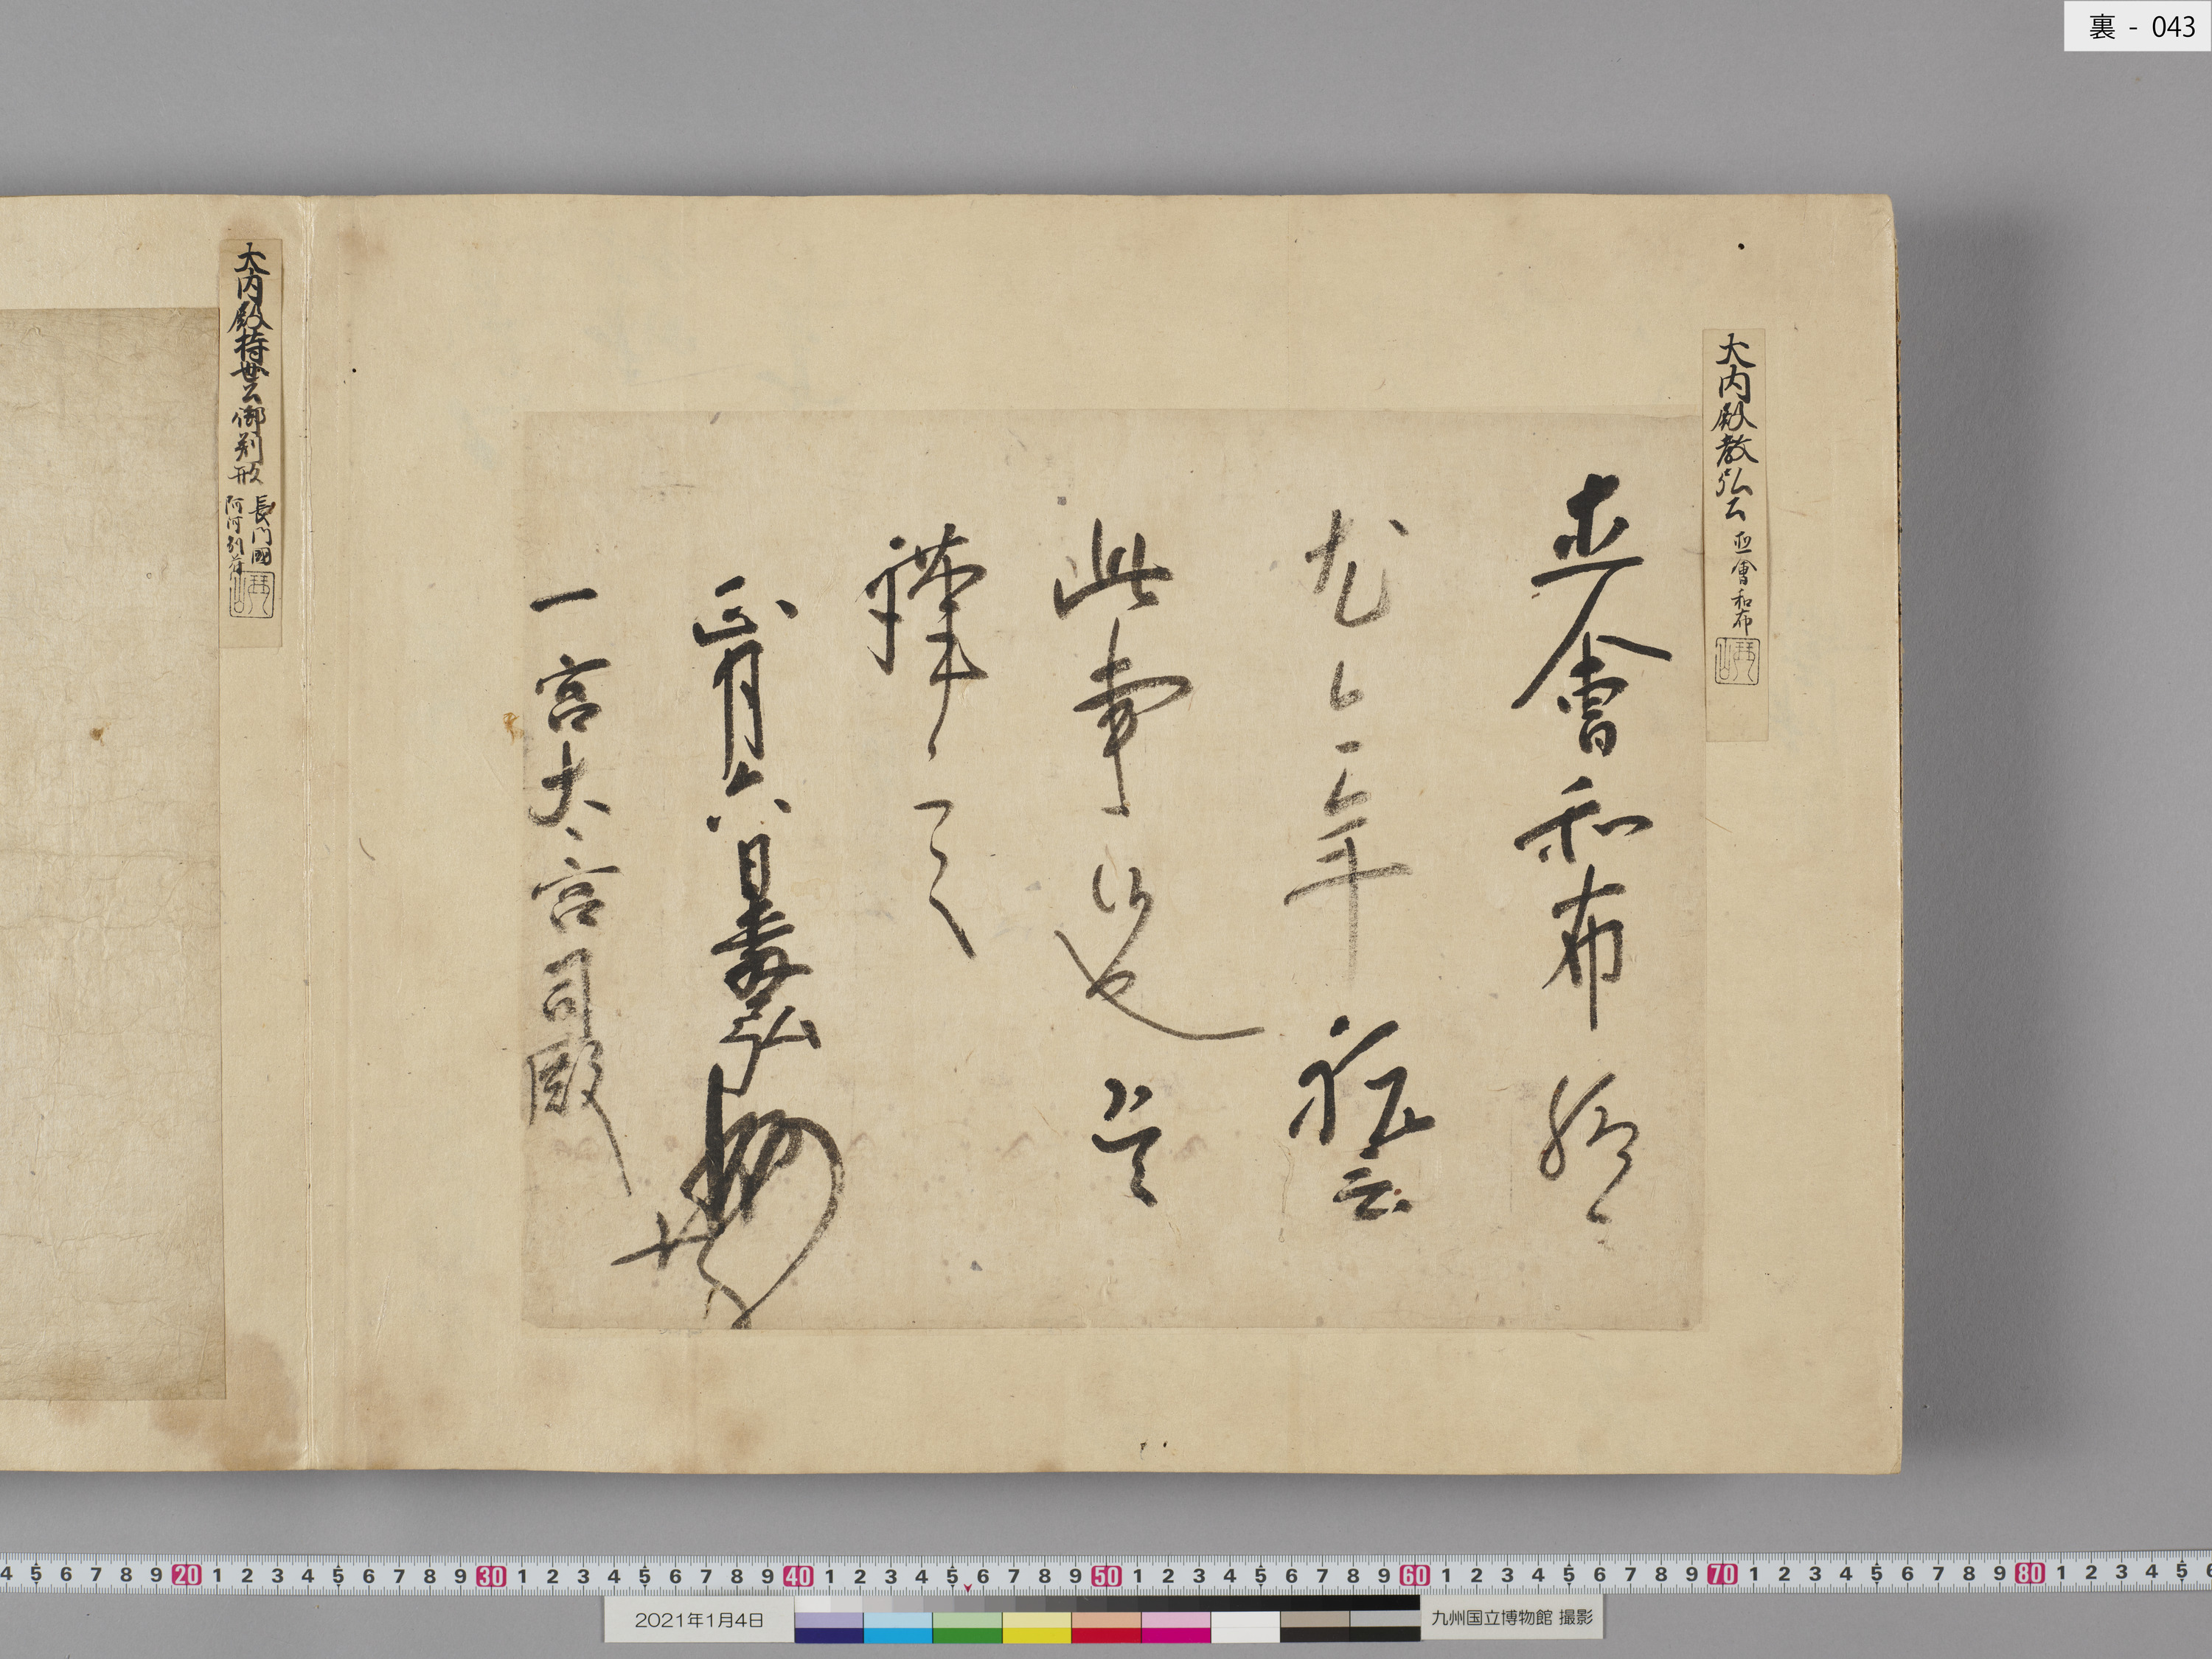 裏 - 043
大内殿教弘公 亟會和布
亟會和布給候
尤〻年〻祈念
此事候也 恐〻
謹言
正月六日 教弘
一宮大宮司殿
大内殿持世公御判形 長門國
阿河別符
4 5 6 7 8 9 20 1 2 3 4 5 6 7 8 9 30 1 2 3 4 5 6 7 8 9 40 1 2 3 4 5 6 7 8 9 50 1 2 3 4 5 6 7 8 9 60 1 2 3 4 5 6 7 8 9 70 1 2 3 4 5 6 7 8 9 80 1 2 3 4 5
2021年1月4日
九州国立博物館 撮影